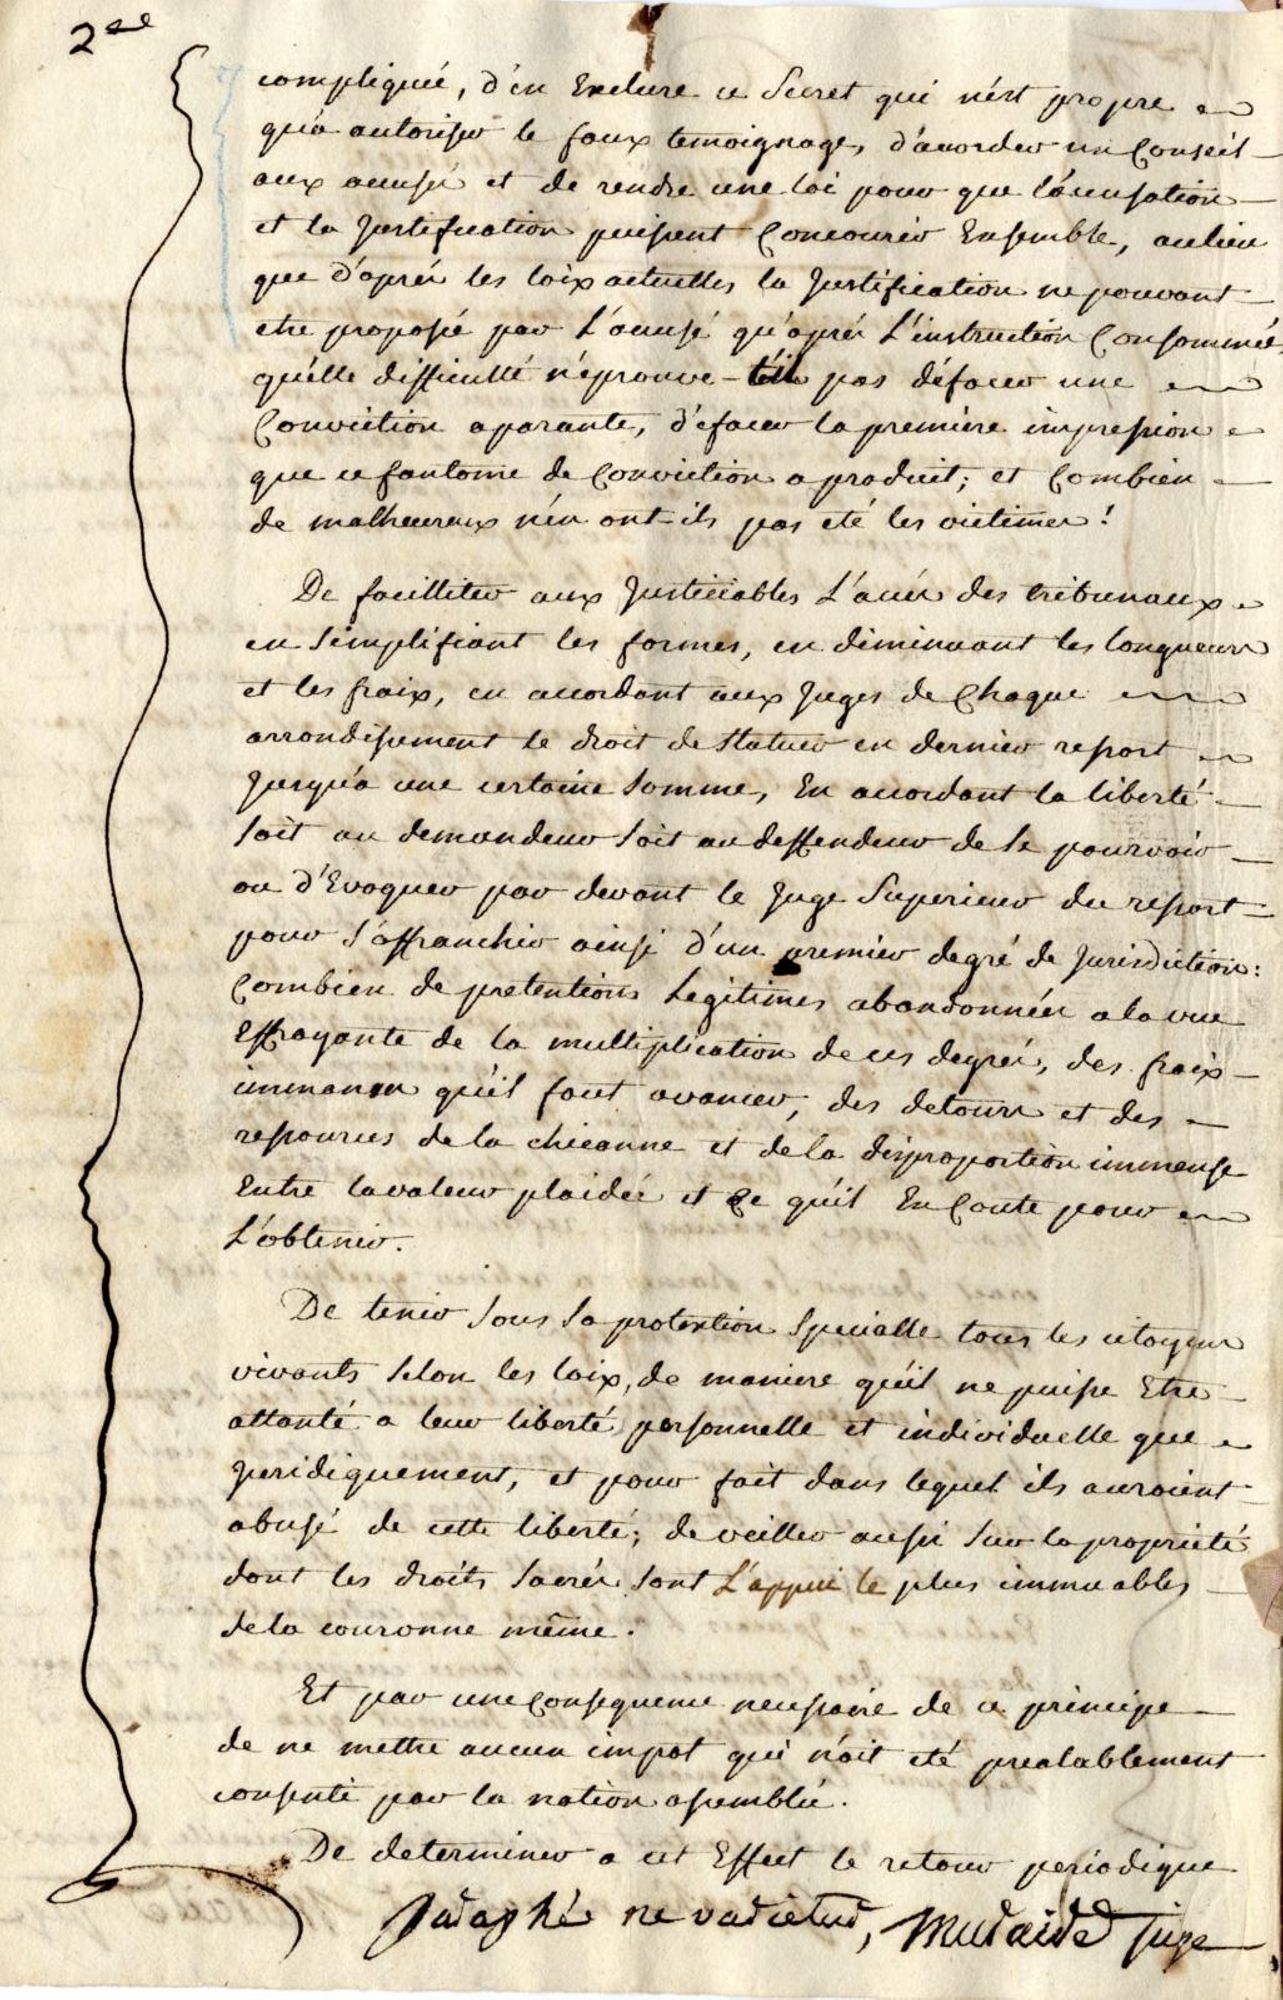 2de
compliquée, d'en Exclure ce Secret qui n'ést propre
qu'a autoriser le faux temoignage, d'acorder un Conseil
aux accusés et de rendre une loi pour que l'acusation
et la Justification puissent Concourir Ensemble, aulieu
que d'aprés les loix actuelles la Justification ne pouvant
etre proposée par L'acusé qu'aprés L'instruction Consommée,
qu'elle difficulté n'éprouve-t'il pas d'éfacer une
Conviction aparante, d'éfacer la premiere impression
que ce fantome de Conviction a produit; et Combien
de malheureux n'en ont-ils pas eté les victimes!
De facilliter aux Justiciables L'accés des tribunaux
en simplifiant les formes, en diminuant les longueurs
et les fraix, en accordant aux Juges de Chaque
arrondissement le droit de statuer en dernier ressort
Jusqu'a une certaine somme, En accordant la liberté
soit au demandeur soit au deffendeur de se pourvoir
ou d'Evoquer par devant le Juge Superieur du ressort
pour s'affranchir ainsi d'un premier degré de Jurisdiction:
Combien de pretentions Legitimes abandonnées a la vue
Effrayante de la multiplication de ces degrés, des fraix
immances qu'il faut avancer, des detours et des
ressources de la chicanne et de la disproportion immense
Entre la valeur plaidée et Ce qu'il En Coute pour
L'obtenir.
De tenir sous sa protextion Specialle tous les citoyens
vivants selon les loix, de maniere qu'il ne puisse Etre
attanté a leur liberté personnelle et individuelle que
Juridiquement, et pour fait dans lequel ils auroient
abusé de cette liberté; de veiller aussi sur la propriété
dont les droits sacrés sont L'appui le plus immuables
de la couronne même.
Et par une Consequence necessaire de ce principe
de ne mettre aucun impot qui n'ait eté prealablement
consenti par la nation assemblée.
De determiner a cet Effect le retour periodique
ne varietur, juge